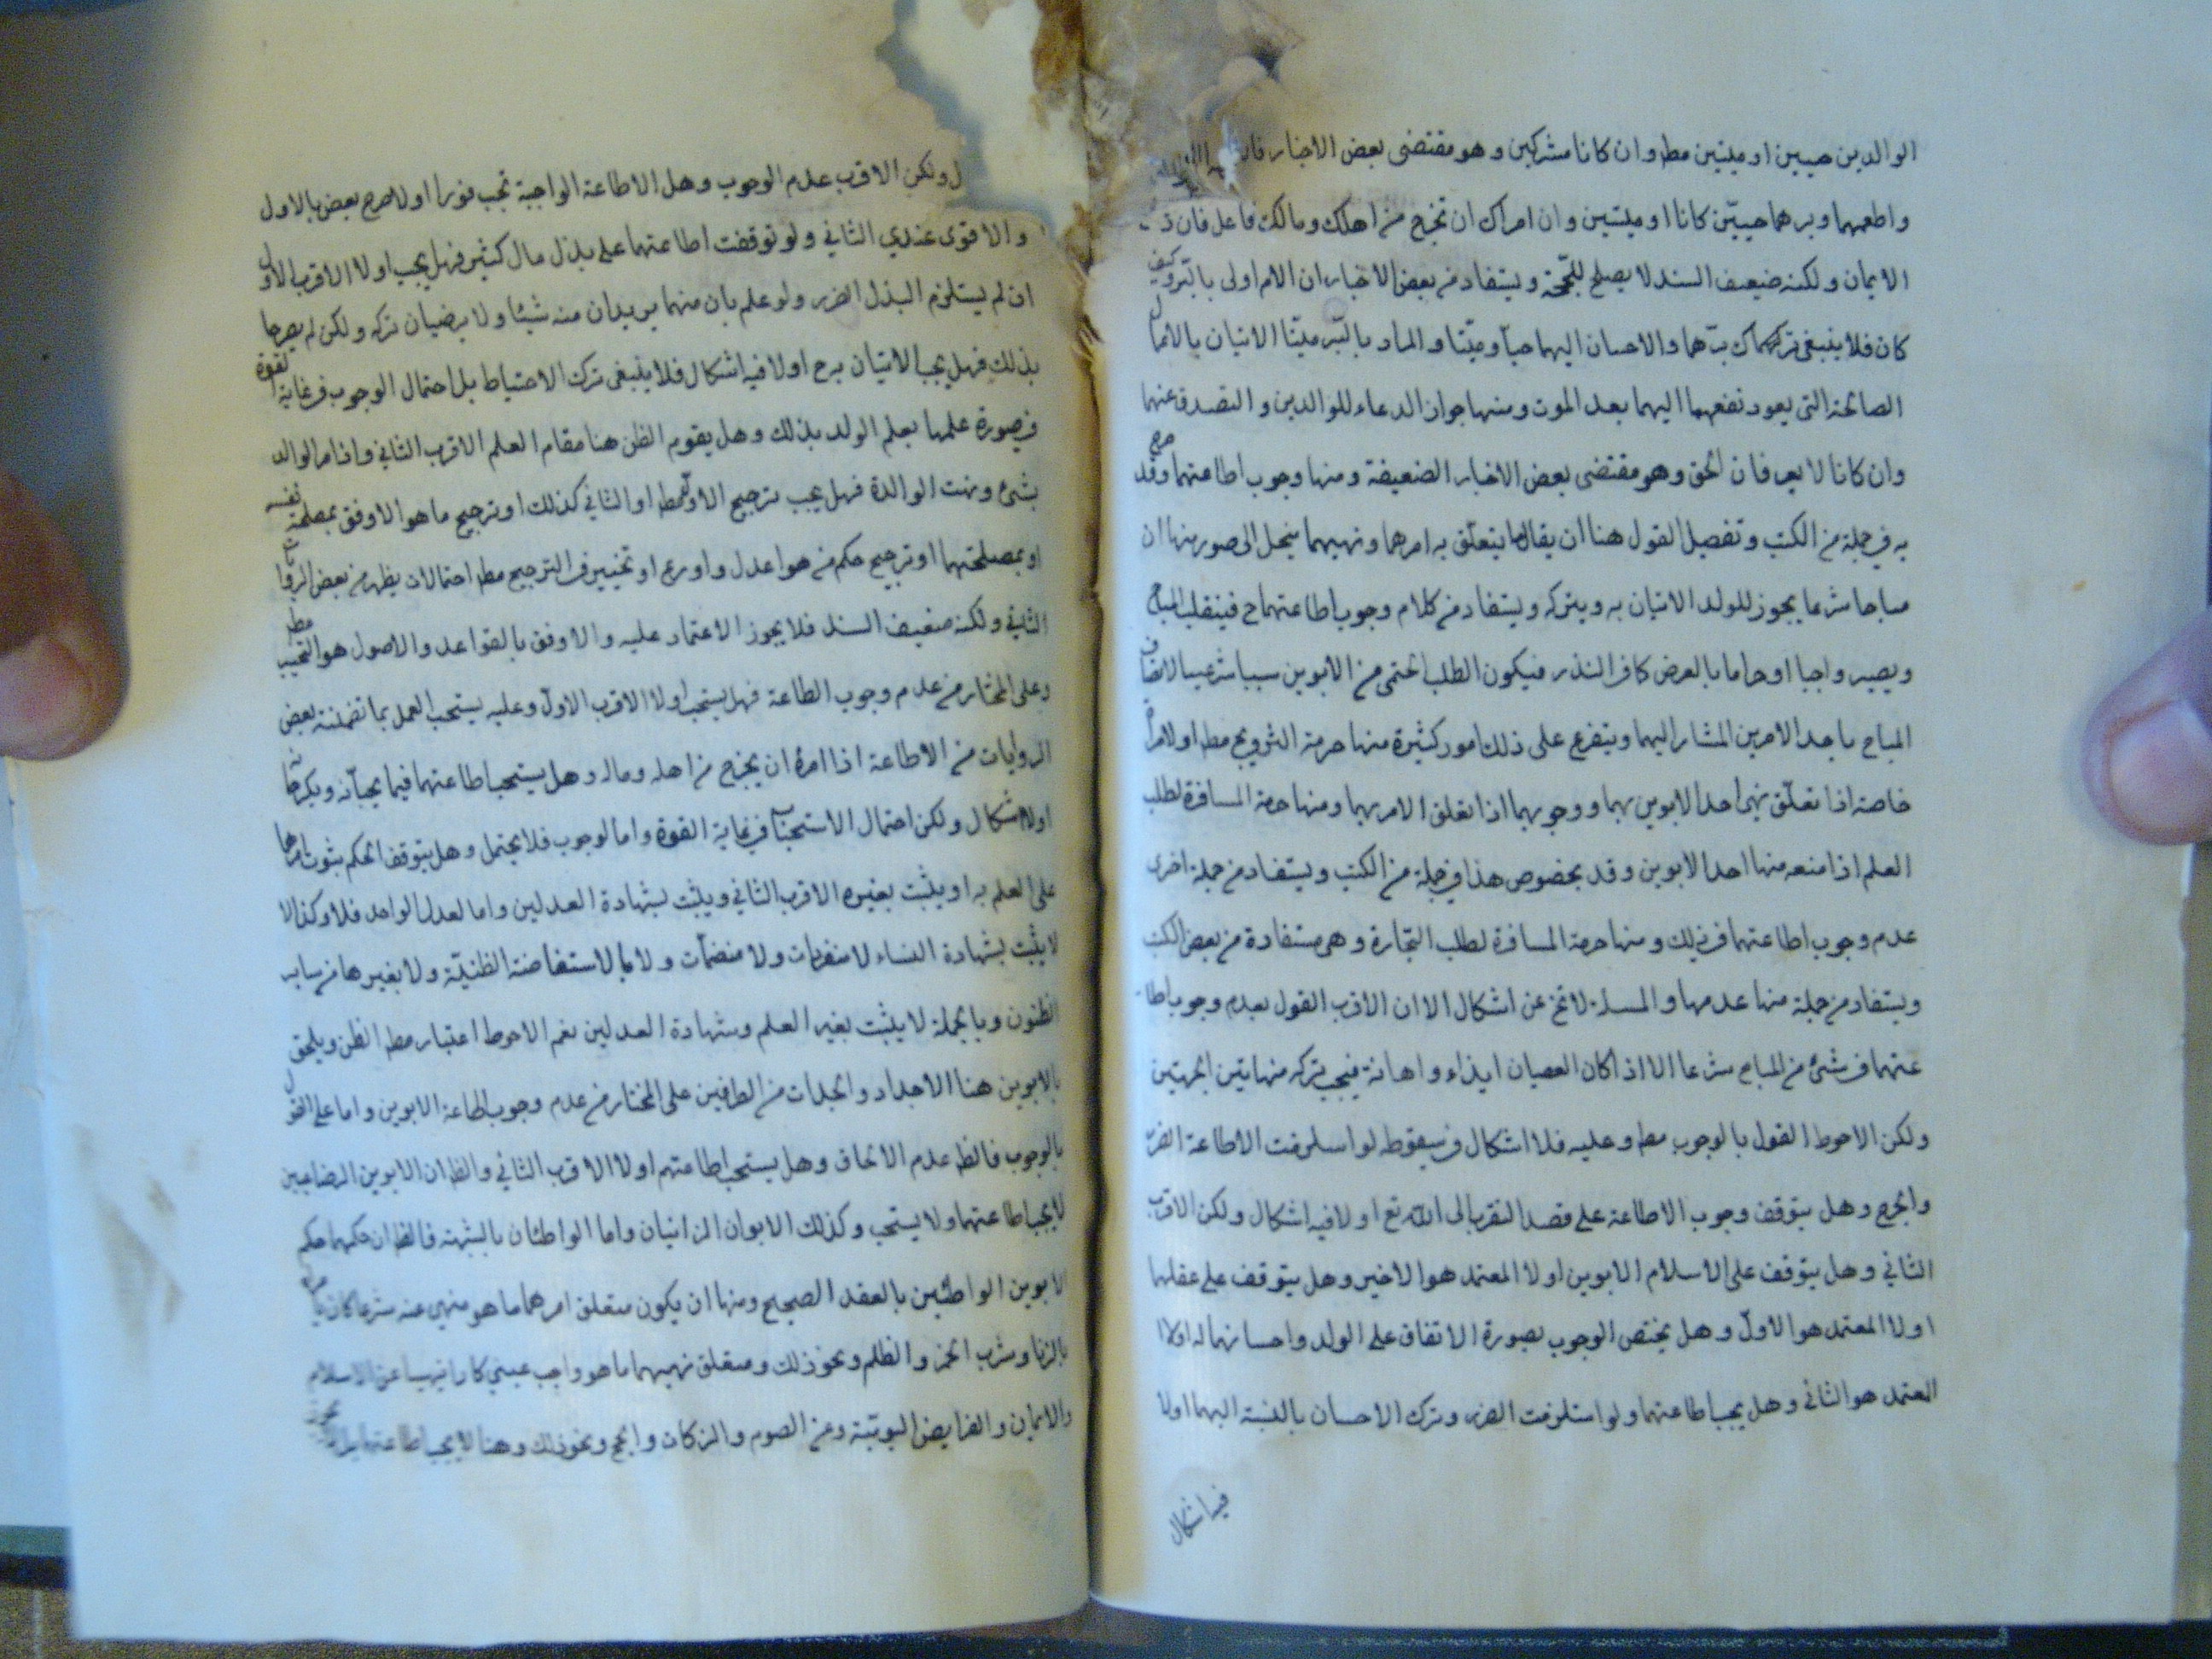 الوالدين حيين او ميتين مط وان كانا مشركين وهو مقتضى بعض الاخبار
واطعهما وبرهما حيين كانا او ميتين وان امراك ان تخرج من اهلك ومالك فافعل فان ذلك من
الايمان ولكنه ضعيف السند لا يصلح للحجة ويستفاد من بعض الاخبار ان الام اولى بالبر وكيف
كان فلا ينبغي ترك برهما والاحسان اليهما حيا وميتا والمراد بالبر ميتا الاتيان بالاعمال
الصالحة التي يعود نفعها اليهما بعد الموت ومنها جواز الدعاء للوالدين والتصدق عنهما
وان كانا لا يعرفان الحق وهو مقتضى بعض الاخبار الضعيفة ومنها وجوب اطاعتهما وقد صرح
به في جملة من الكتب وتفصيل القول هنا ان يقال ما يتعلق به امرهما ونهيهما ينحل الى صور منها ان
مباحا شرعا يجوز للولد الاتيان به ويتركه ويستفاد من كلام وجوب اطاعتهما ح فينقلب المباح
ويصير واجبا او حراما بالعرض كما في النذر فيكون الطلب الحتمي من الابوين سببا شرعيا لاتصاف
المباح باحد الامرين المشار اليهما ويتفرع على ذلك امور كثيرة منها حرمة التزويج مط او لامراة
خاصة اذا تعلق نهي احد الابوين بهما ووجوبهما اذا تعلق الامر بهما ومنها حرمة المسافرة لطلب
العلم اذا منعه منها احد الابوين وقد بخصوص هذا في جملة من الكتب ويستفاد من جملة اخرى
عدم وجوب اطاعتهما في ذلك ومنها حرمة المسافرة لطلب التجارة وهي مستفادة من بعض الكتب
ويستفاد من جملة منها عدمها والمسئلة لا تخ عن اشكال الا ان الاقرب القول بعدم وجوب اطا
عتهما في شئ من المباح شرعا الا اذا كان العصيان ايذاء واهانة فيجب تركه من هاتين الجهتين
ولكن الاحوط القول بالوجوب مط وعليه فلا اشكال في سقوطه لو استلزمت الاطاعة الضرر
والحرج وهل يتوقف وجوب الاطاعة على قصد التقرب الى الله تع او لا فيه اشكال ولكن الاقرب
الثاني وهل يتوقف على الاسلام الابوين او لا المعتمد هو الاخير وهل يتوقف على عقلهما
او لا المعتمد هو الاول وهل يختص الوجوب بصورة الانفاق على الولد واحسانهما له او لا
المعتمد هو الثاني وهل يجب اطاعتهما ولو استلزمت الضرر وترك الاحسان بالنسبة اليهما او لا
فيه اشكال
ولكن الاقرب عدم الوجوب وهل الاطاعة الواجبة تجب فورا او لا صرح بعض بالاول
والاقوى عندي الثاني ولو توقفت اطاعتهما على بذل مال كثير فهل يجب او لا الاقرب الاول
ان لم يستلزم البذل الضرر ولو علم بان منهما يريدان منه شيئا ولا يرضيان تركه ولكن لم يصرحا
بذلك فهل يجب الاتيان به ح او لا فيه اشكال فلا ينبغي ترك الاحتياط بل احتمال الوجوب في غاية القوة
في صورة علمهما بعلم الولد بذلك وهل يقوم الظن هنا مقام العلم الاقرب الثاني واذا امر الوالد
بشئ ونهت الوالدة فهل يجب ترجيح الاول مط او الثاني كذلك او ترجيح ما هو الاوفق بمصلحة نفسه
او بمصلحتهما او ترجيح حكم من هو اعدل واورع او تخيير في الترجيح مط احتمالات يظهر من بعض الروايات
الثاني ولكنه ضعيف السند فلا يجوز الاعتماد عليه والاوفق بالقواعد والاصول هو التخيير مط
وعلى المختار من عدم وجوب الطاعة فهل يستحب او لا الاقرب الاول وعليه يستحب العمل بما تضمنته بعض
الروايات من الاطاعة اذا امره ان يخرج من اهله وماله وهل يستحب اطاعتهما فيما يحبانه ويكرهانه
او لا اشكال ولكن احتمال الاستحباب في غاية القوة واما الوجوب فلا يحتمل وهل يتوقف الحكم بثبوت امرهما
على العلم به او يثبت بغيره الاقرب الثاني ويثبت بشهادة العدلين واما العدل الواحد فلا وكذا لا
لا يثبت بشهادة النساء لا منفردات ولا منضمات ولا بالاستفاضة الظنية ولا بغيرها من ساير
الظنون وبالجملة لا يثبت بغير العلم وشهادة العدلين نعم الاحوط اعتبار مط الظن ويلحق
بالابوين هنا الاجداد والجدات من الطرفين على المختار من عدم وجوب اطاعة الابوين واما على القول
بالوجوب فالظ عدم الالحاق وهل يستحب اطاعتهم او لا الاقرب الثاني والظ ان الابوين الرضاعيين
لا يجب اطاعتهما ولا يستحب وكذلك الابوان الزانيان واما الواطئان بالشبهة فالظ ان حكمهما حكم
الابوين الواطئين بالعقد الصحيح ومنها ان يكون متعلق امرهما ما هو منهي عنه شرعا كان يامراه
بالزنا وشرب الخمر والظلم ونحو ذلك ومتعلق نهيهما ما هو واجب عيني كان ينهيا عن الاسلام
والايمان والفرايض اليومية وعن الصوم والزكات والحج ونحو ذلك وهنا لا يجب اطاعتهما